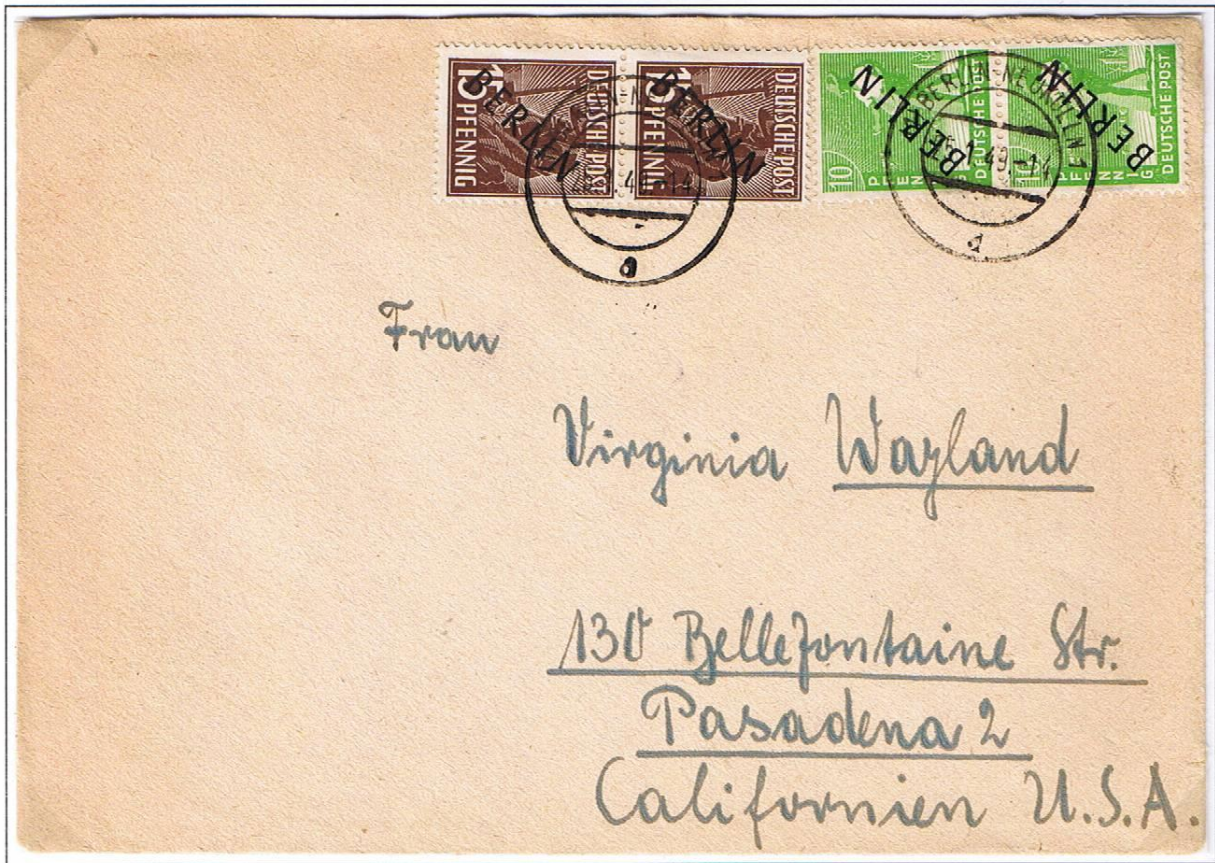 15 PFENNIG DEUTSCHE POST BERLIN
15 PFENNIG DEUTSCHE POST BERLIN
10 PFENNIG DEUTSCHE POST BERLIN
PFENNIG DEUTSCHE POST BERLIN
BERLIN
BERLIN-NEUKÖLLN 1
49.-14
a
Frau
Virginia Wayland
130 Bellefontaine Str.
Pasadena 2
Californien U.S.A.